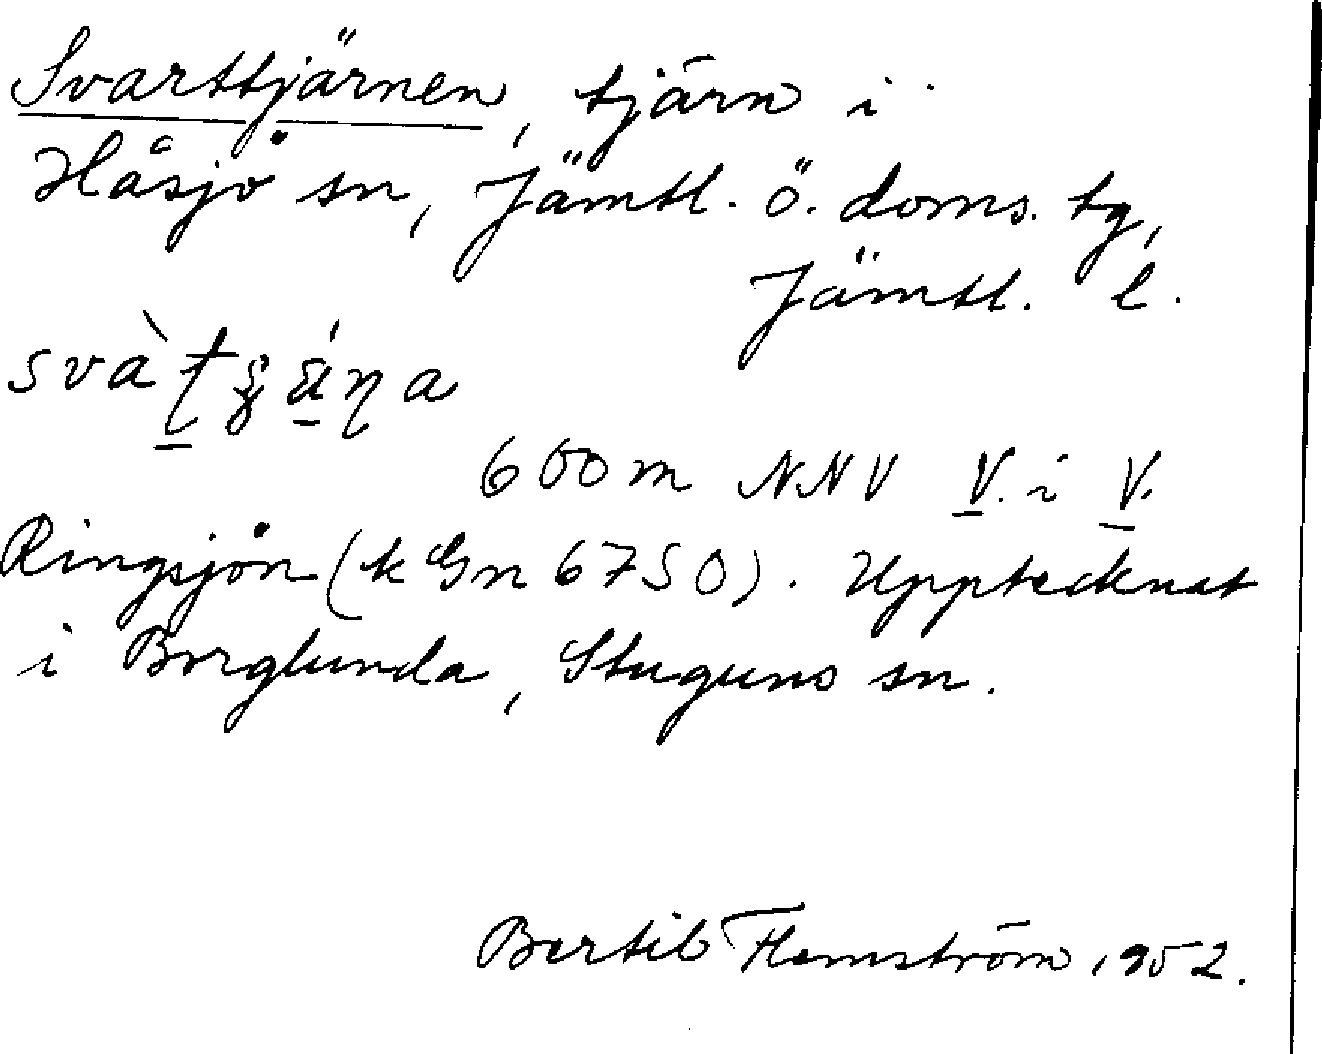 Svarttjärnen, tjärn i
Håsjö sn, Jämtl. ö. doms. tg,
Jämtl. l.
600 m NNV V. i V.
Ringsjön (k Gn 6750). Upptecknat
i Borglunda, Stuguns sn.
Bertil Flemström 1952.